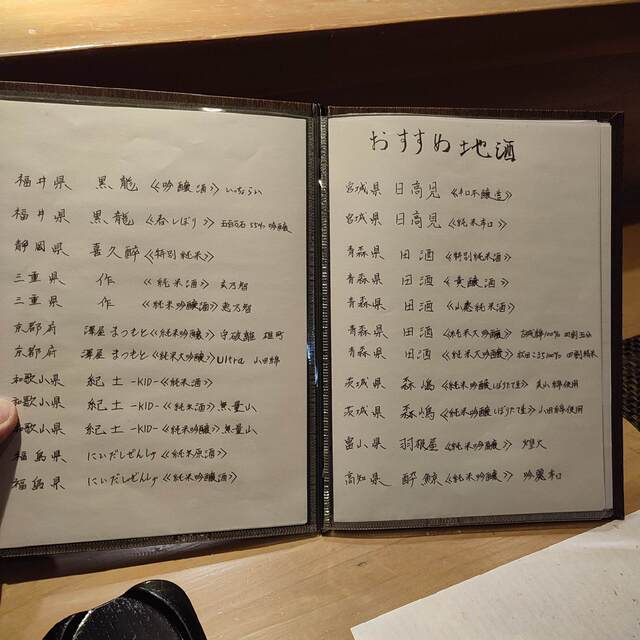 おすすめ地酒
宮城県 日高見 ≪本醸造≫
宮城県 日高見 ≪純米≫
青森県 田酒 ≪特別純米酒≫
青森県 田酒 ≪貴醸酒≫
青森県 田酒 ≪山廃純米酒≫
青森県 田酒 ≪純米大吟醸≫ 古城錦100% 四割五分
青森県 田酒 ≪純米大吟醸≫ 秋田こまち100% 四割精米
茨城県 森嶋 ≪純米吟醸しぼりたて生≫ 美山錦使用
茨城県 森嶋 ≪純米吟醸しぼりたて生≫ 山田錦使用
富山県 羽根屋 ≪純米吟醸≫ 煌火
高知県 酔鯨 ≪純米吟醸≫ 吟麗
福井県 黒龍 ≪吟醸酒≫ いっちょらい
福井県 黒龍 ≪春しぼり≫ 五百万石 55% 吟醸
静岡県 喜久酔 ≪特別純米≫
三重県 作 ≪純米酒≫ 玄乃智
三重県 作 ≪純米吟醸酒≫ 恵乃智
京都府 澤屋まつもと ≪純米吟醸≫ 守破離 雄町
京都府 澤屋まつもと ≪純米大吟醸≫ Ultra 山田錦
和歌山県 紀土 -KID- ≪純米酒≫
和歌山県 紀土 -KID- ≪純米酒≫ 無量山
和歌山県 紀土 -KID- ≪純米吟醸≫ 無量山
福島県 にいだしぜんしゅ ≪純米原酒≫
福島県 にいだしぜんしゅ ≪純米吟醸酒≫